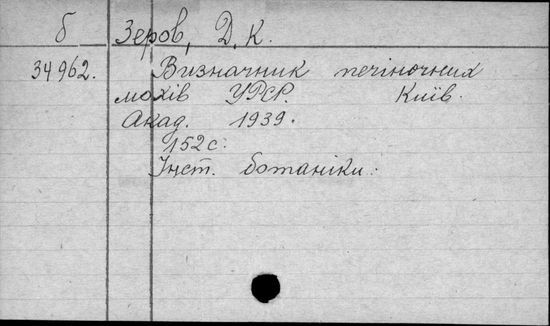 б Зеров, Д. К.
34962. Визначник печіночних
мохів УРСР. Київ.
Акад. 1939.
152с.
Інст. ботаніки.